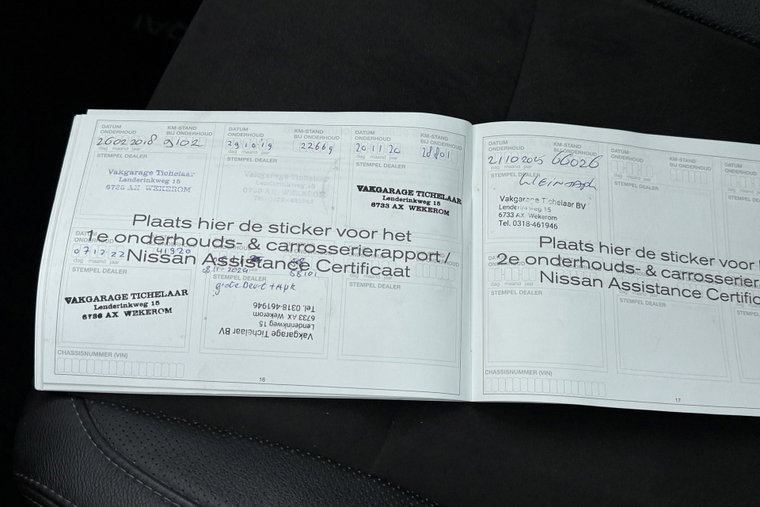 DATUM ONDERHOUD
KM-STAND BIJ ONDERHOUD
26 02 2018 9102
dag maand jaar
STEMPEL DEALER
Vakgarage Tichelaar
Lenderinkweg 15
6733 AX WEKEROM
DATUM ONDERHOUD
KM-STAND BIJ ONDERHOUD
22669
dag maand jaar
STEMPEL DEALER
DATUM ONDERHOUD
KM-STAND BIJ ONDERHOUD
20 11 20
dag maand jaar
STEMPEL DEALER
VAKGARAGE TICHELAAR
Lenderinkweg 15
6733 AX WEKEROM
Plaats hier de sticker voor het
1e onderhouds- & carrosserierapport /
Nissan Assistance Certificaat
07 12 22 41320
dag maand jaar
STEMPEL DEALER
VAKGARAGE TICHELAAR
Lenderinkweg 15
6733 AX WEKEROM
STEMPEL DEALER
grote Beurt + Apk
Vakgarage Tichelaar BV
Lenderinkweg 15
6733 AX Wekerom
Tel. 0318-461946
STEMPEL DEALER
CHASSISNUMMER (VIN)
16
DATUM ONDERHOUD
KM-STAND BIJ ONDERHOUD
21/10 2025 66026
dag maand jaar
STEMPEL DEALER
Vakgarage Tichelaar BV
Lenderinkweg 15
6733 AX Wekerom
Tel. 0318-461946
DATUM ONDERHOUD
KM-STAND BIJ ONDERHOUD
STEMPEL DEALER
DATUM ONDERHOUD
STEMPEL DEALER
Plaats hier de sticker voor
2e onderhouds- & carrosserier
Nissan Assistance Certific
STEMPEL DEALER
STEMPEL DEALER
STEMPEL DEALER
CHASSISNUMMER (VIN)
17